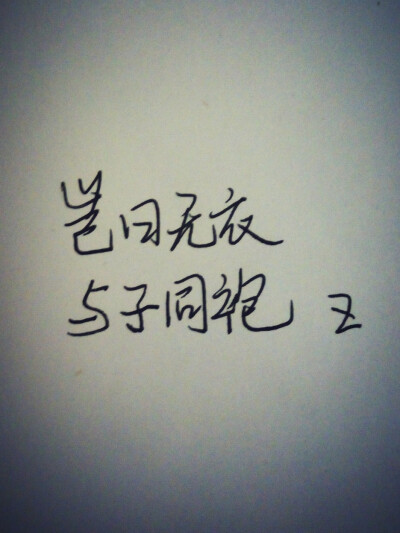 岂曰无衣
与子同袍 Z